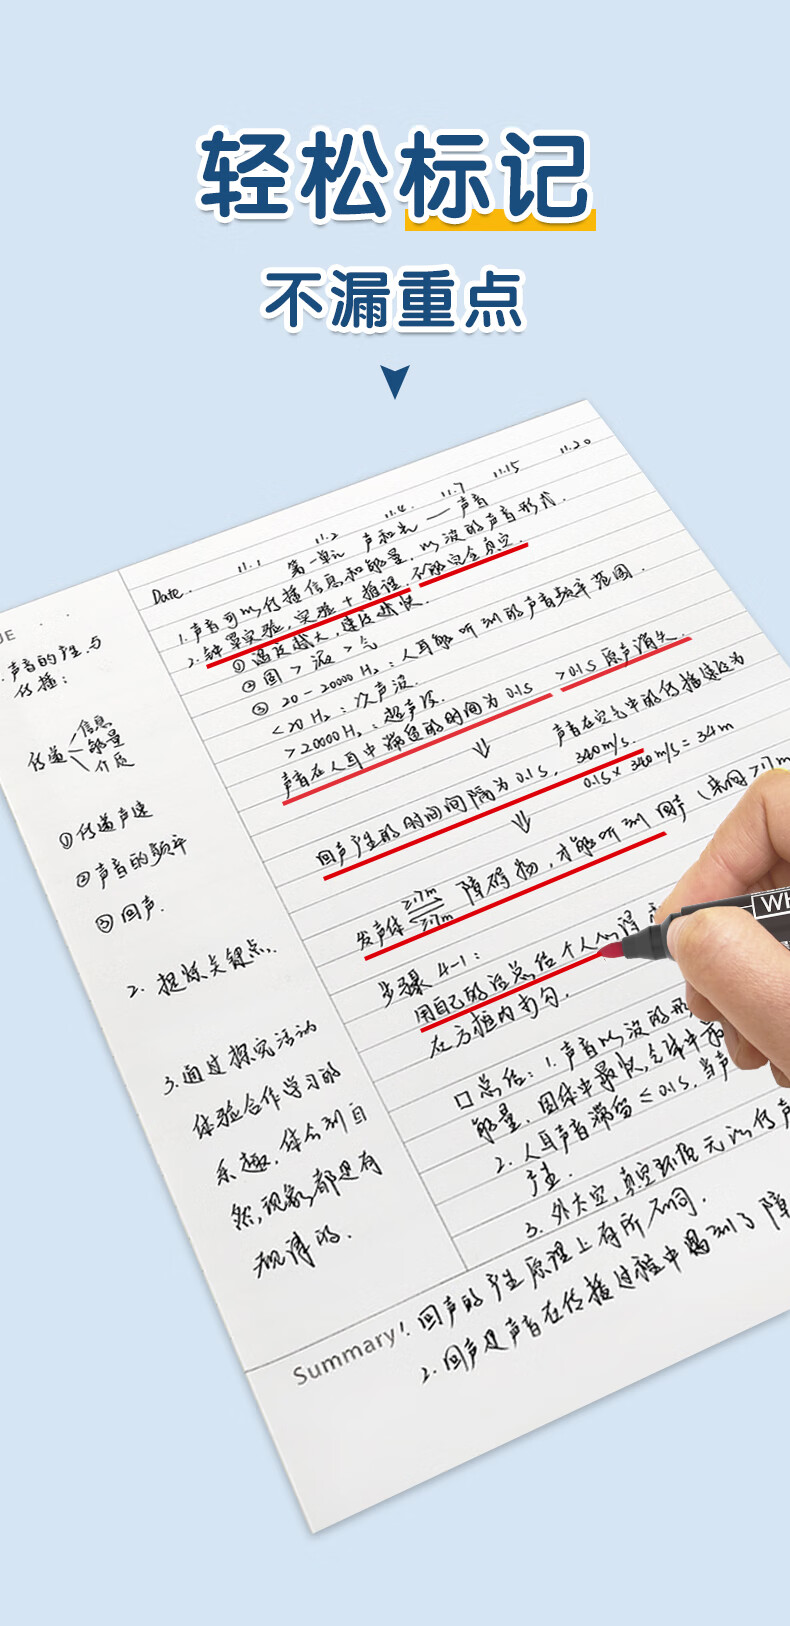 轻松标记
不漏重点
11.1 11.2 11.4. 11.7 11.15 11.20
Date.
第一单元 声和光 — 声音
1. 声音可以传播信息和能量, 以波的声音形式.
2. 钟罩实验, 实验+推理, 不能完全真空.
① 温度越大, 速度越快.
② 固 > 液 > 气
③ 20-20000 Hz : 人耳能听到的声音频率范围.
<20 Hz : 次声波.
>20000 Hz : 超声波.
声音在人耳中滞留的时间为 0.1s >0.1s 原声消失
声音在空气中的传播速度为
回声产生的时间间隔为 0.1s, 340m/s.
0.1s × 340 m/s = 34m
≥17m 障碍物, 才能听到回声 (来回 >17m
发声体 ≥17m
步骤 4-1 :
用自己的话总结个人心得
在方框内
口总结: 1. 声音以波的形
能量, 固体中最快, 气体中最
2. 人耳声音滞留 ≤ 0.1s, 当声
产生.
3. 外太空, 真空环境无以传声
UE
声音的产生与
传播:
传递 信息
能量
介质
① 传递声速
② 声音的频率
③ 回声.
2. 提炼关键点.
3. 通过探究活动
体验合作学习的
乐趣, 体会到自
然, 现象都是有
规律的.
Summary! 回声的产生原理上有所不同.
2. 回声是声音在传播过程中遇到了障
WH